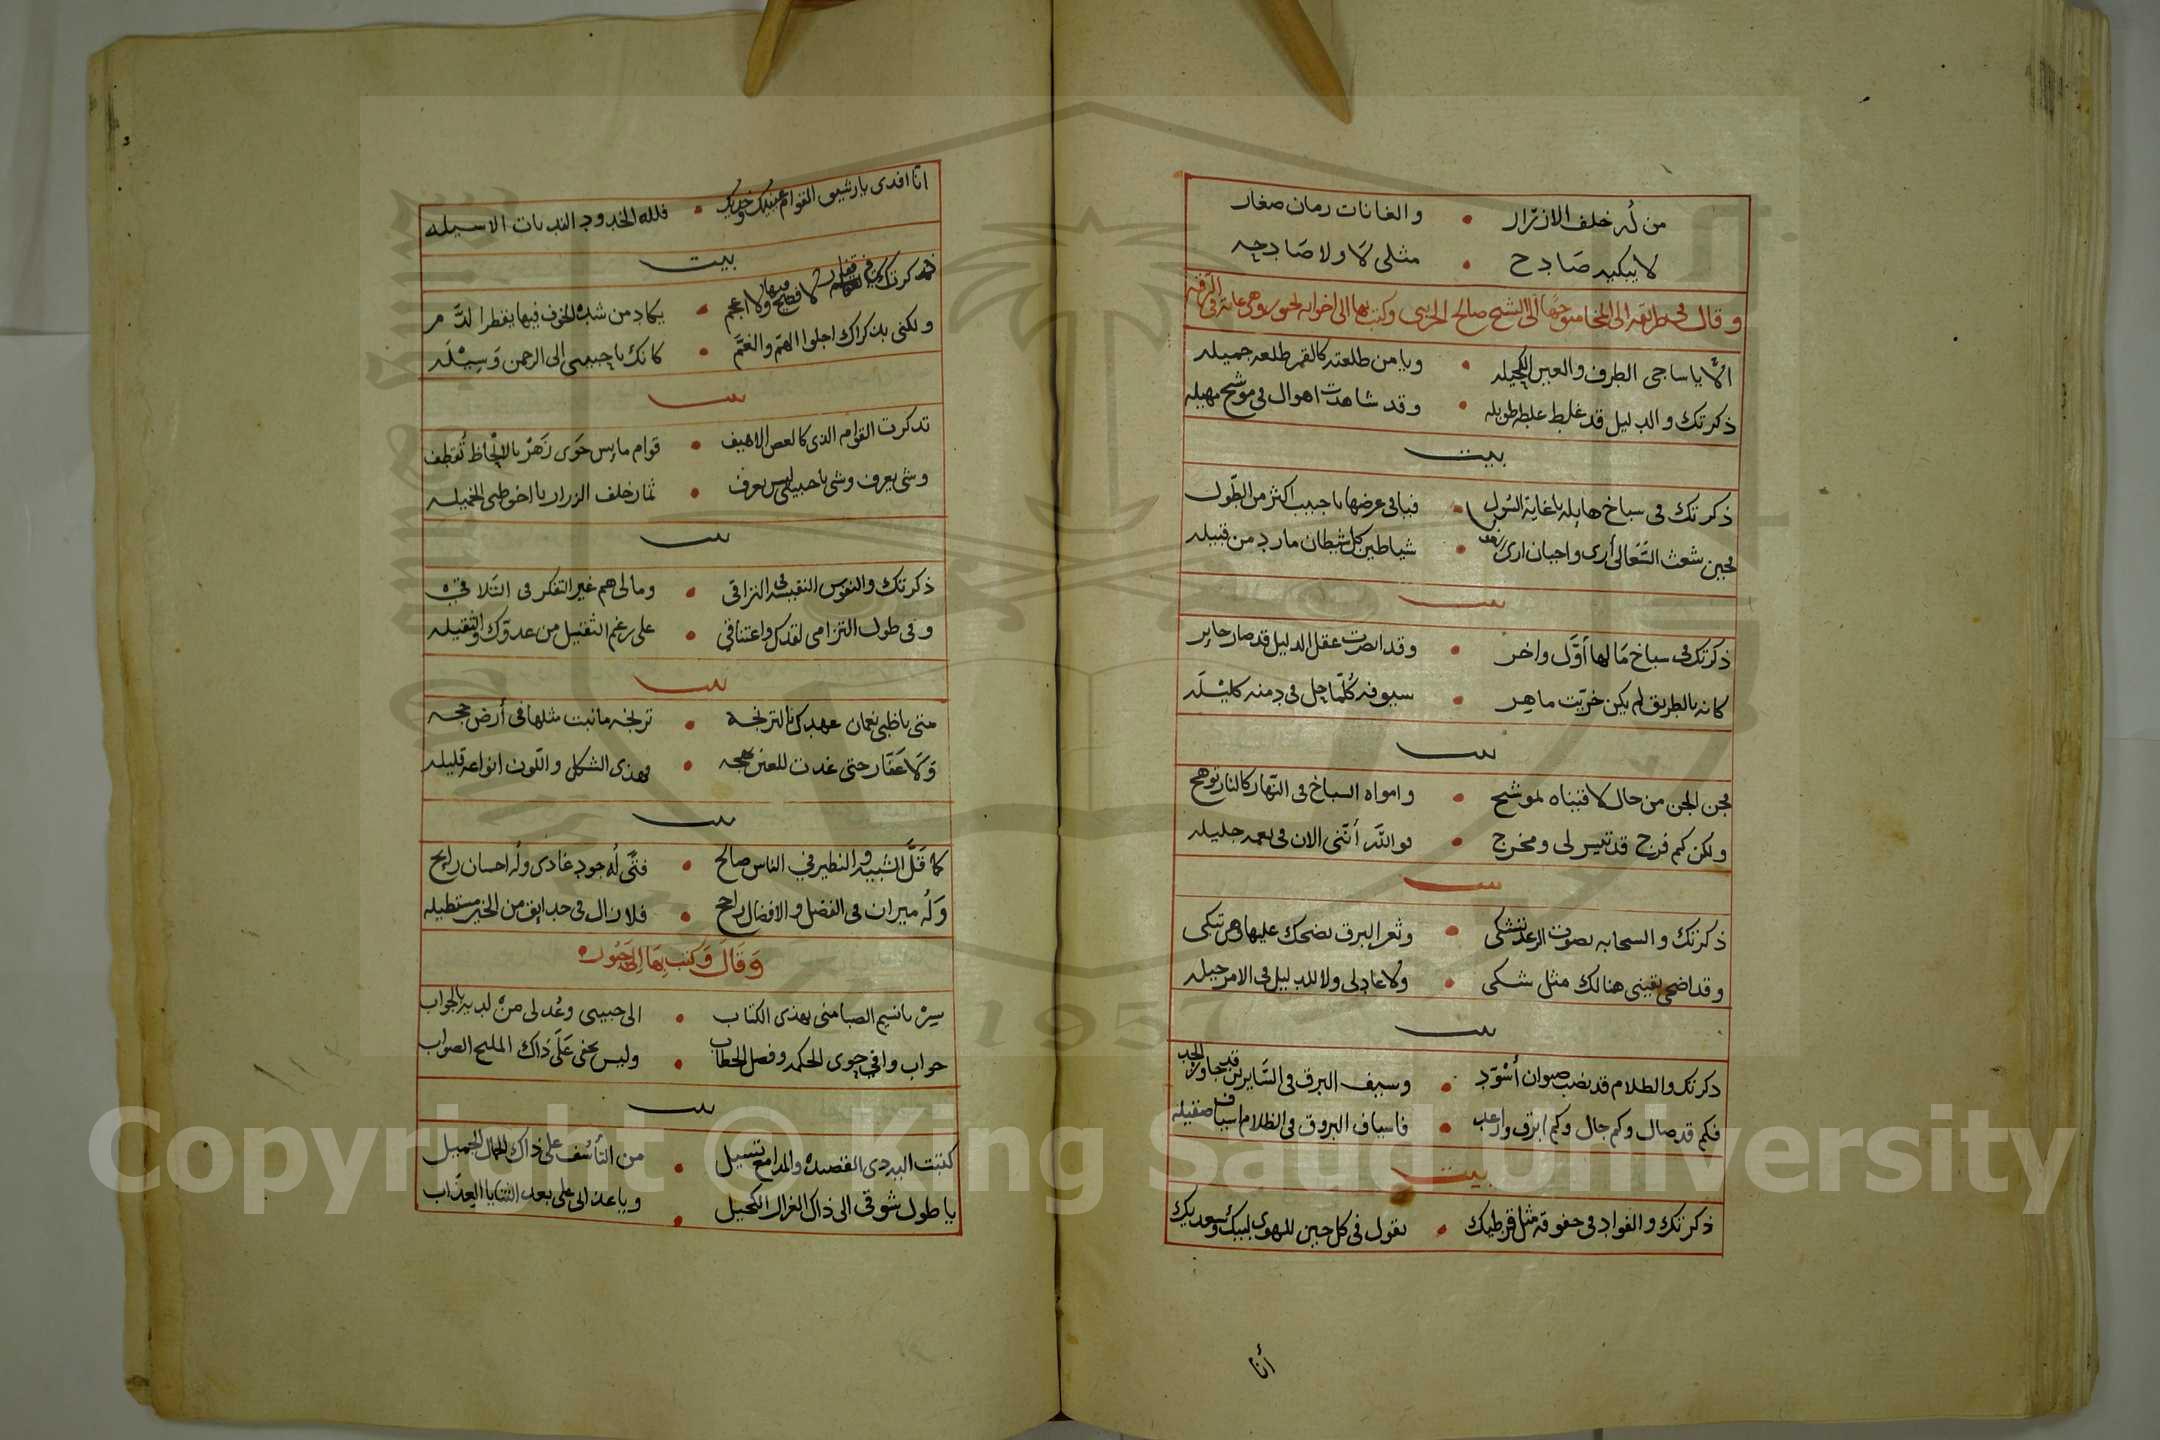 من له خلف الازرار • والغانات رمان صغار
لا يبكيه صادح • مثلي لا ولا صادحه
وقال في طريقه الى المخا متوجها الى الشيخ صالح الحريبي وكتب بها الى اخوانه وهي غاية في الرقة
الا يا ساجي الطرف والعين الكحيله • ويا من طلعته كالقمر طلعه جميله
ذكرتك والدليل قد غلط غلطه طويله • وقد شاهدت اهوال في موشح مهيله
بيت
ذكرتك في سباخ هايله يا غاية السول • فيافي عرضها يا حبيب اكثر من الطول
فحين شعث السعالى أرى واحيان ارى • شياطين كل شيطان مارد من قبيله
بيت
ذكرتك في سباخ ما لها أول واخر • وقد ابصرت عقل الدليل قد صار حاير
كانه بالطريق لم يكن خريت ماهر • سيوفه كلما حل في دمنه كليله
بيت
فحن الجن من حال لاقيناه لموشح • وامواه السباخ في النهار كالنار توهج
ولكن كم فرج قد تيسر لي ومخرج • فوالله أنني الان في نعمه جليله
بيت
ذكرتك والسحابه بصوت الرعد تشكي • وثغر البرق يضحك عليها وهي تبكي
وقد اضحى يقيني هنالك مثل شكي • ولا عاد لي ولا للدليل في الامر حيله
بيت
ذكرتك والظلام قد نصب صيوان أسود • وسيف البرق في السايرين قد جاوز الحد
فكم قد صال وكم جال وكم ابرق وارعد • فاسياف البروق في الظلام اسياف صقيله
بيت
ذكرتك والفواد في خفوقه مثل قرطيك • يقول في كل حين للهوى لبيك وسعديك
أنا
انا افدي يا رشيق القوام عينيك وخديك • فلله الخدود النديات الاسيله
بيت
ذكرتك في قفار لا فصيح فيها ولا اعجم • يكاد من شدة الخوف فيها يقطر الدم
ولكني بذكراك اجلو الهم والغم • كانك يا حبيبي الى الرحمن وسيله
بيت
تذكرت القوام الذي كالغصن الاهيف • قوام مايس حوى زهر بالالحاظ تقطف
وشي يعرف وشي يا حبيبي ليس يعرف • ثمار خلف الزرار يا اخو ظبي الخميله
بيت
ذكرتك والنفوس النفيسه في التراقي • وما لي هم غير التفكر في التلاقي
وفي طول التزامي لقدك واعتناقي • على رغم الثقيل من عدوك والثقيله
بيت
متى يا ظبي نعمان عهدك بالترنجه • ترنجه ما نبت مثلها في أرض حجه
ولا عفار حتى غدت للعين بهجه • فهذي الشكل واللون انواعه قليله
بيت
كما قل الشبيه والنظير في الناس صالح • فتى له جود غادي وله احسان رايح
وله ميزان في الفضل والافضال راجح • فلا زال في حدايق من الخير مستطيله
وقال وكتب بها الى
سر يا نسيم الصبا مني بهذي الكتاب • الى حبيبي وعد لي من لديه بالجواب
جواب وافي حوى الحكمه وفصل الخطاب • وليس يخفى على ذاك المليح الصواب
بيت
كتبت اليه ذي القصيده والمدامع تسيل • من التأسف على ذاك الجمال الجميل
يا طول شوقي الى ذاك الغزال الكحيل • ويا عذابي على بعد الثنايا العذاب